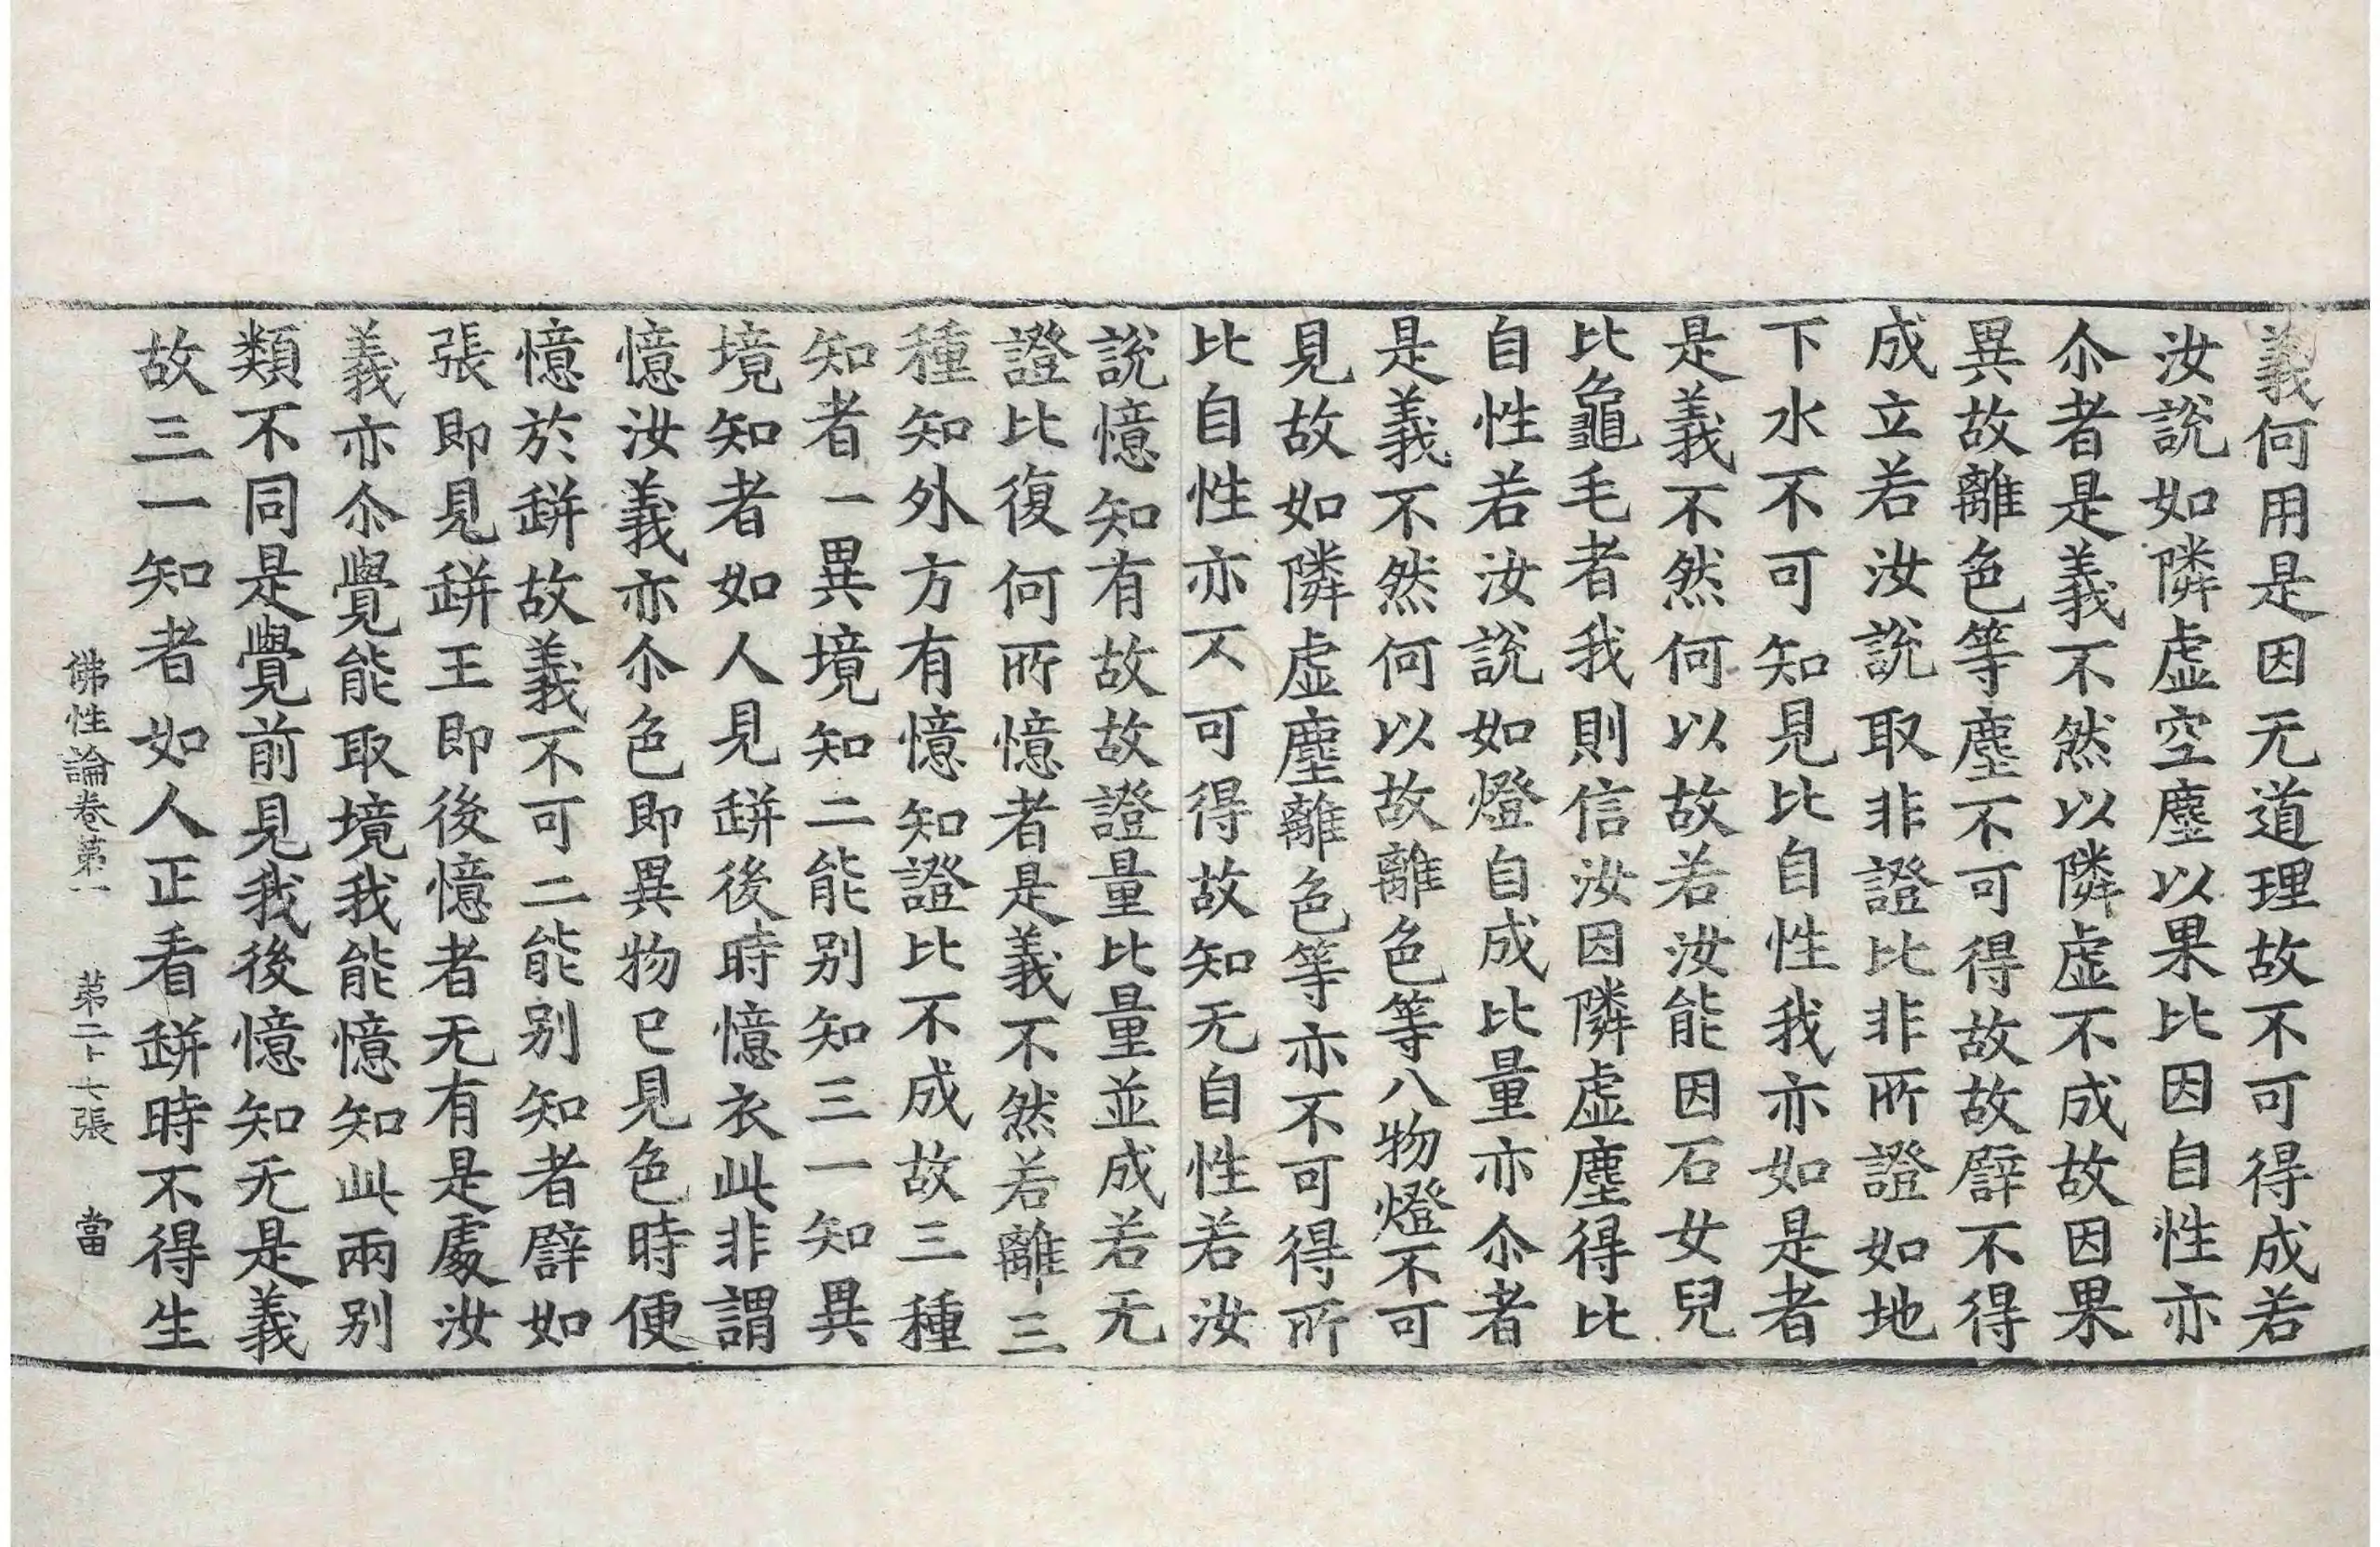 義何用是因无道理故不可得成若
汝說如隣虛空塵以果比因自性亦
尒者是義不然以隣虛不成故因果
異故離色等塵不可得故故譬不得
成立若汝說取非證比非所證如地
下水不可知見比自性我亦如是者
是義不然何以故若汝能因石女兒
比龜毛者我則信汝因隣虛塵得比
自性若汝說如燈自成比量亦尒者
是義不然何以故離色等八物燈不可
見故如隣虛塵離色等亦不可得所
比自性亦不可得故知无自性若汝
說憶知有故故證量比量並成若无
證比復何所憶者是義不然若離三
種知外方有憶知證比不成故三種
知者一異境知二能別知三一知異
境知者如人見缾後時憶衣此非謂
憶汝義亦尒色即異物已見色時便
憶於缾故義不可二能別知者譬如
張即見缾王即後憶者无有是處汝
義亦尒覺能取境我能憶知此兩別
類不同是覺前見我後憶知无是義
故三一知者如人正看缾時不得生
佛性論卷第一 第二十七張 當